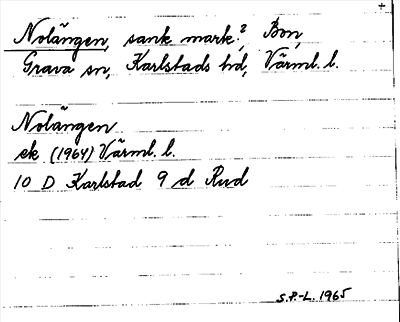 +
Nolängen, sank mark?, Bon,
Grava sn, Karlstads hd, Värml. l.
Nolängen
ek (1964) Värml. l.
10 D Karlstad 9 d Rud
S.P.-L. 1965